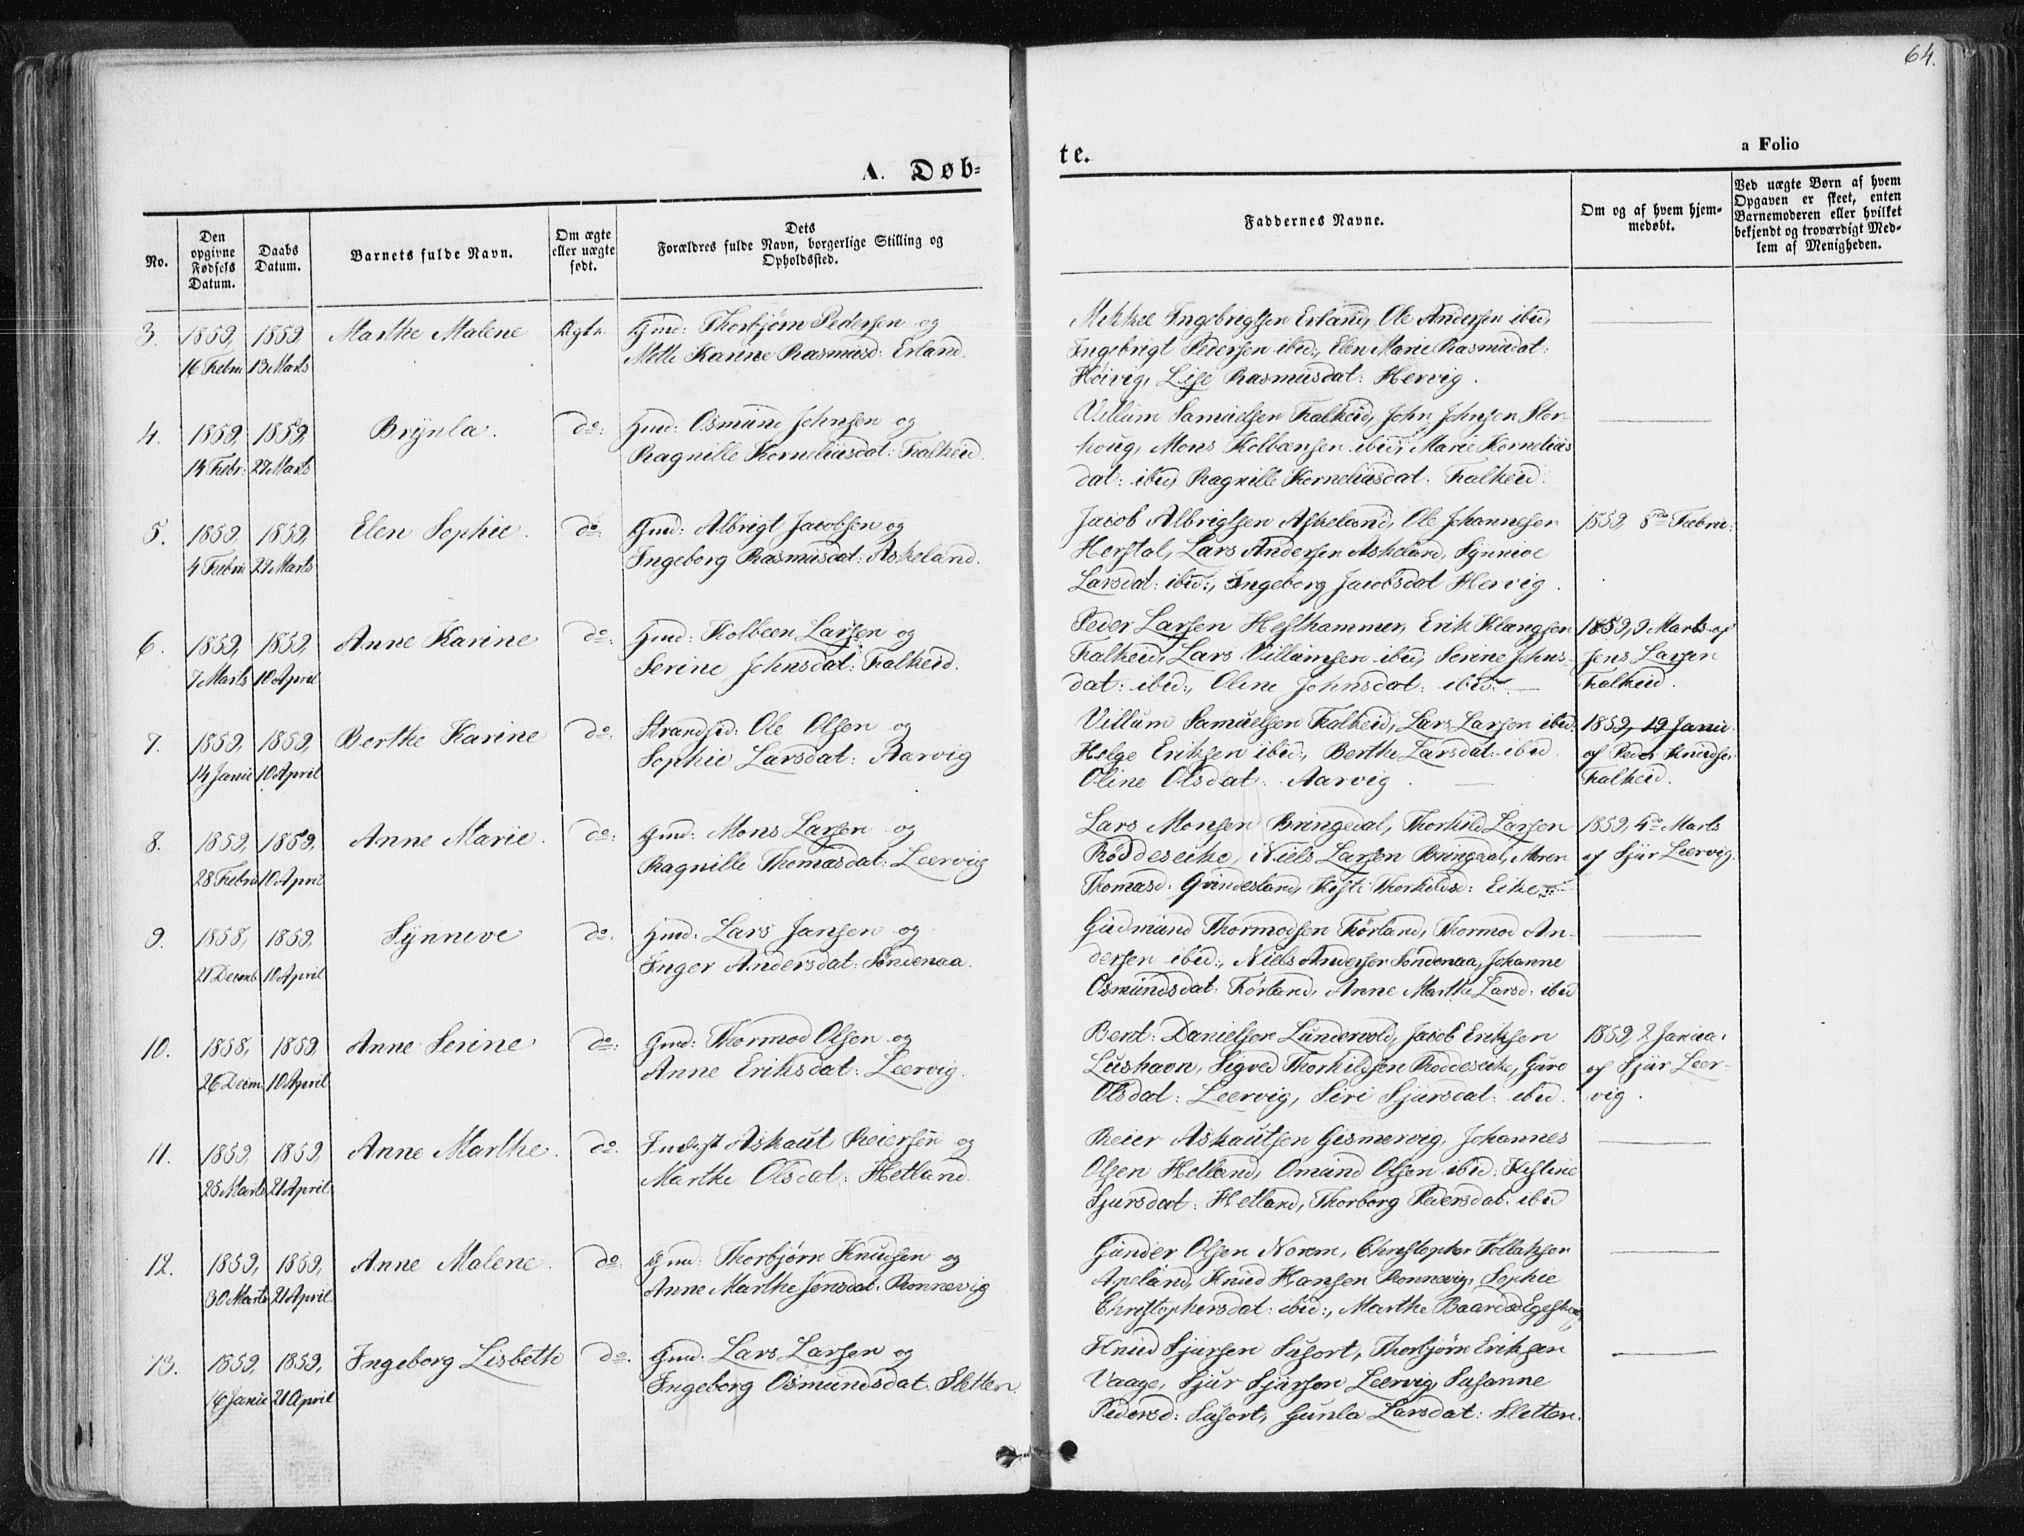 64.
A. Døb-
te.
a Folio
No.
Den opgivne Fødsels Datum.
Daabs Datum.
Barnets fulde Navn.
Om ægte eller uægte født.
Dets Forældres fulde Navn, borgerlige Stilling og Opholdssted.
Faddernes Navne.
Om og af hvem hjemmedøbt.
Ved uægte Børn af hvem Opgaven er skeet, enten Barnemoderen eller hvilket bekjendt og troværdigt Medlem af Menigheden.
3. 1859, 1859 Marthe Malene Ægte. Gmd: Thorbjørn Pedersen og
16 Febru 13 Marts Mette Karine Rasmusd: Erland.
Mikkel Ingebrigtsen Erland, Ole Andersen ibid,
Ingebrigt Pedersen ibid:, Elen Marie Rasmusdat:
Høivig, Lise Rasmusdat: Hervig.
4. 1859, 1859, Brynla. do: Gmd: Osmund Johnsen og
14 Febr: 27 Marts Ragnille Korneliusdat: Falkeid.
Villum Samuelsen Falkeid, John Johnsen Stor-
houg, Mons Kolbænsen ibid, Marie Kornelius
dat: ibid, Ragnille Korneliusdat. Falkeid.
5. 1859, 1859, Elen Sophie. do: Gmd: Albrigt Jacobsen og
4 Febru 27 Marts Ingeborg Rasmusdat: Askeland.
Jacob Albrigtsen Askeland, Ole Johannesen
Herstal, Lars Andersen Askeland, Synnive
Larsdat: ibid:, Ingeborg Jacobsdat Hervig.
1859 8de Febru:
6. 1859, 1859, Anne Karine do: Gmd: Kolbeen Larsen og
7 Marts 10 April Serine Johnsdat: Falkeid.
Peder Larsen Hesthammer, Erik Klangsen
Falkeid, Lars Villumsen ibid, Serine Johns-
dat: ibid:, Oline Johnsdat: ibid:
1859, 9 Marts af
Jens Larsen
Falkeid.
7. 1859, 1859, Berthe Karine do: Strandsid: Ole Olsen og
14 Janu 10 April Sophie Larsdat: Aarvig
Villum Samuelsen Falkeid, Lars Larsen ibid:
Helge Eriksen ibid:, Berthe Larsdat: ibid.
Oline Olsdat: Aarvig.
1859, 19 Janu:
af Peder Knudsen
Falkeid.
8. 1859, 1859, Anne Marie. do: Gmd: Mons Larsen og
28 Febru 10 April Ragnille Thomasdat: Leervig
Lars Monsen Bringedal, Thorkild Larsen
Røddeseike, Niels Larsen Bringdal, Maren
Thomasd: Grindesland, Thorkildsd: Eike
1859, 4de Marts
af Sjur Leervig.
9. 1858, 1859, Synneve do. Gmd: Lars Jansen og
21 Decmb 10 April Inger Andersdat: Søndenaa.
Gudmund Thormodsen Førland, Thormod An-
dersen ibid:, Niels Andersen Søndenaa, Johanne
Osmundsdat: Førland, Anne Marthe Larsd: ibid
10. 1858, 1859 Anne Serine do: Gmd: Thormod Olsen og
26 Decm 10 April Anne Eriksdat: Leervig.
Bent: Danielsen Lundevold, Jacob Eriksen
Lushavn, Sigved Thorkildsen Røddeseike, Guro
Olsdat: Leervig, Siri Sjursdat: ibid.
1859, 2 Janua:
af Sjur Leer-
vig.
11. 1859, 1859, Anne Marthe. do. Inderst Askaut Reiersen og
25 Marts 21 April Marthe Olsdat: Hetland.
Reier Askautsen Gismervig, Johannes
Olsen Hetland, Omund Olsen ibid: Kistine
Sjursdat: Hetland, Thorborg Pedersdat. ibid
12. 1859, 1859, Anne Malene. do: Gmd: Thorbjørn Knudsen og
30 Marts 21 April Anne Marthe Jensdat: Rønnevig
Gunder Olsen Norem, Christopher Tollaksen
Apeland, Knud Hansen Rønnevig, Sophie
Christophersdat: ibid:, Marthe Baardsd
13. 1859, 1859, Ingeborg Lisbeth do. Gmd: Lars Larsen og
16 Janu 21 April Ingeborg Osmundsdat. Sletten.
Knud Sjursen Susort, Thorbjørn Eriksen
Vaage, Sjur Sjursen Leervig, Susanne
Pedersd: Susort, Gunla Larsdat: Sletten.